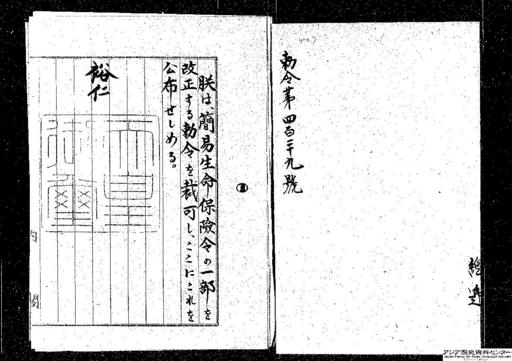 勅令第四百三十九號
朕は、簡易生命保險令の一部を
改正する勅令を裁可し、ここにこれを
公布せしめる。
裕仁
天皇御璽
内閣
アジア歴史資料センター